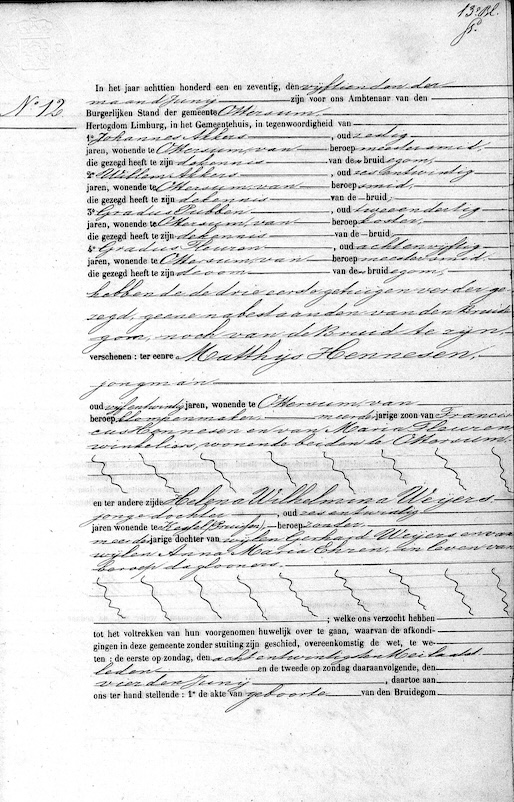 13e Bl.
In het jaar achttien honderd een en zeventig, den vijftienden der
No 12 maand Juny zijn voor ons Ambtenaar van den
Burgerlijken Stand der gemeente Ottersum,
Hertogdom Limburg, in het Gemeentehuis, in tegenwoordigheid van
1e Johannes Akkers, oud zestig
jaren, wonende te Ottersum, van beroep meestersmid,
die gezegd heeft te zijn de kennis van de bruidegom,
2e Willem Akkers, oud zes en twintig
jaren, wonende te Ottersum, van beroep smid,
die gezegd heeft te zijn de kennis van de bruid,
3e Gradus Pubben, oud twee en dertig
jaren, wonende te Ottersum, van beroep koster,
die gezegd heeft te zijn de kennis van de bruid,
4e Gradus Theuren, oud acht en vijftig
jaren, wonende te Ottersum, van beroep meester smid
die gezegd heeft te zijn de oom van de bruidegom,
hebbende de drie eerste getuigen verder ge-
zegd, geene nabestaanden van den Bruide
gom, noch van de Bruid te zijn
verschenen : ter eenre Matthijs Hennesen,
jongman
oud vijf en twintig jaren, wonende te Ottersum, van
beroep klompenmaker meerderjarige zoon van Francis
cus Hennesen en van Maria Theuren
winkeliers, wonende beiden te Ottersum.
en ter andere zijde Helena Wilhelmina Weijers
jonge dochter, oud zes en twintig
jaren wonende te Kessel (Pruisen), beroep zonder
meerderjarige dochter van wijlen Gerhard Weijers en van
wijlen Anna Maria in leven van
beroep daglooners.
; welke ons verzocht hebben
tot het voltrekken van hun voorgenomen huwelijk over te gaan, waarvan de afkondi-
gingen in deze gemeente zonder stuiting zijn geschied, overeenkomstig de wet, te we-
ten : de eerste op zondag, den acht en twintigsten Mei laatst
leden en de tweede op zondag daaraanvolgende, den
vierden Juny, daartoe aan
ons ter hand stellende : 1e de akte van geboorte van den Bruidegom